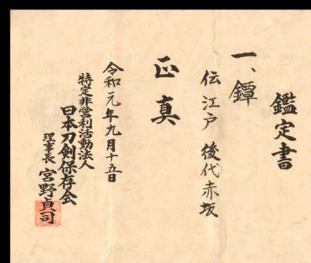 鑑定書
一、鐔
伝江戸 後代赤坂
正真
令和元年九月十五日
特定非営利活動法人
日本刀剣保存会
理事長 宮野貞司